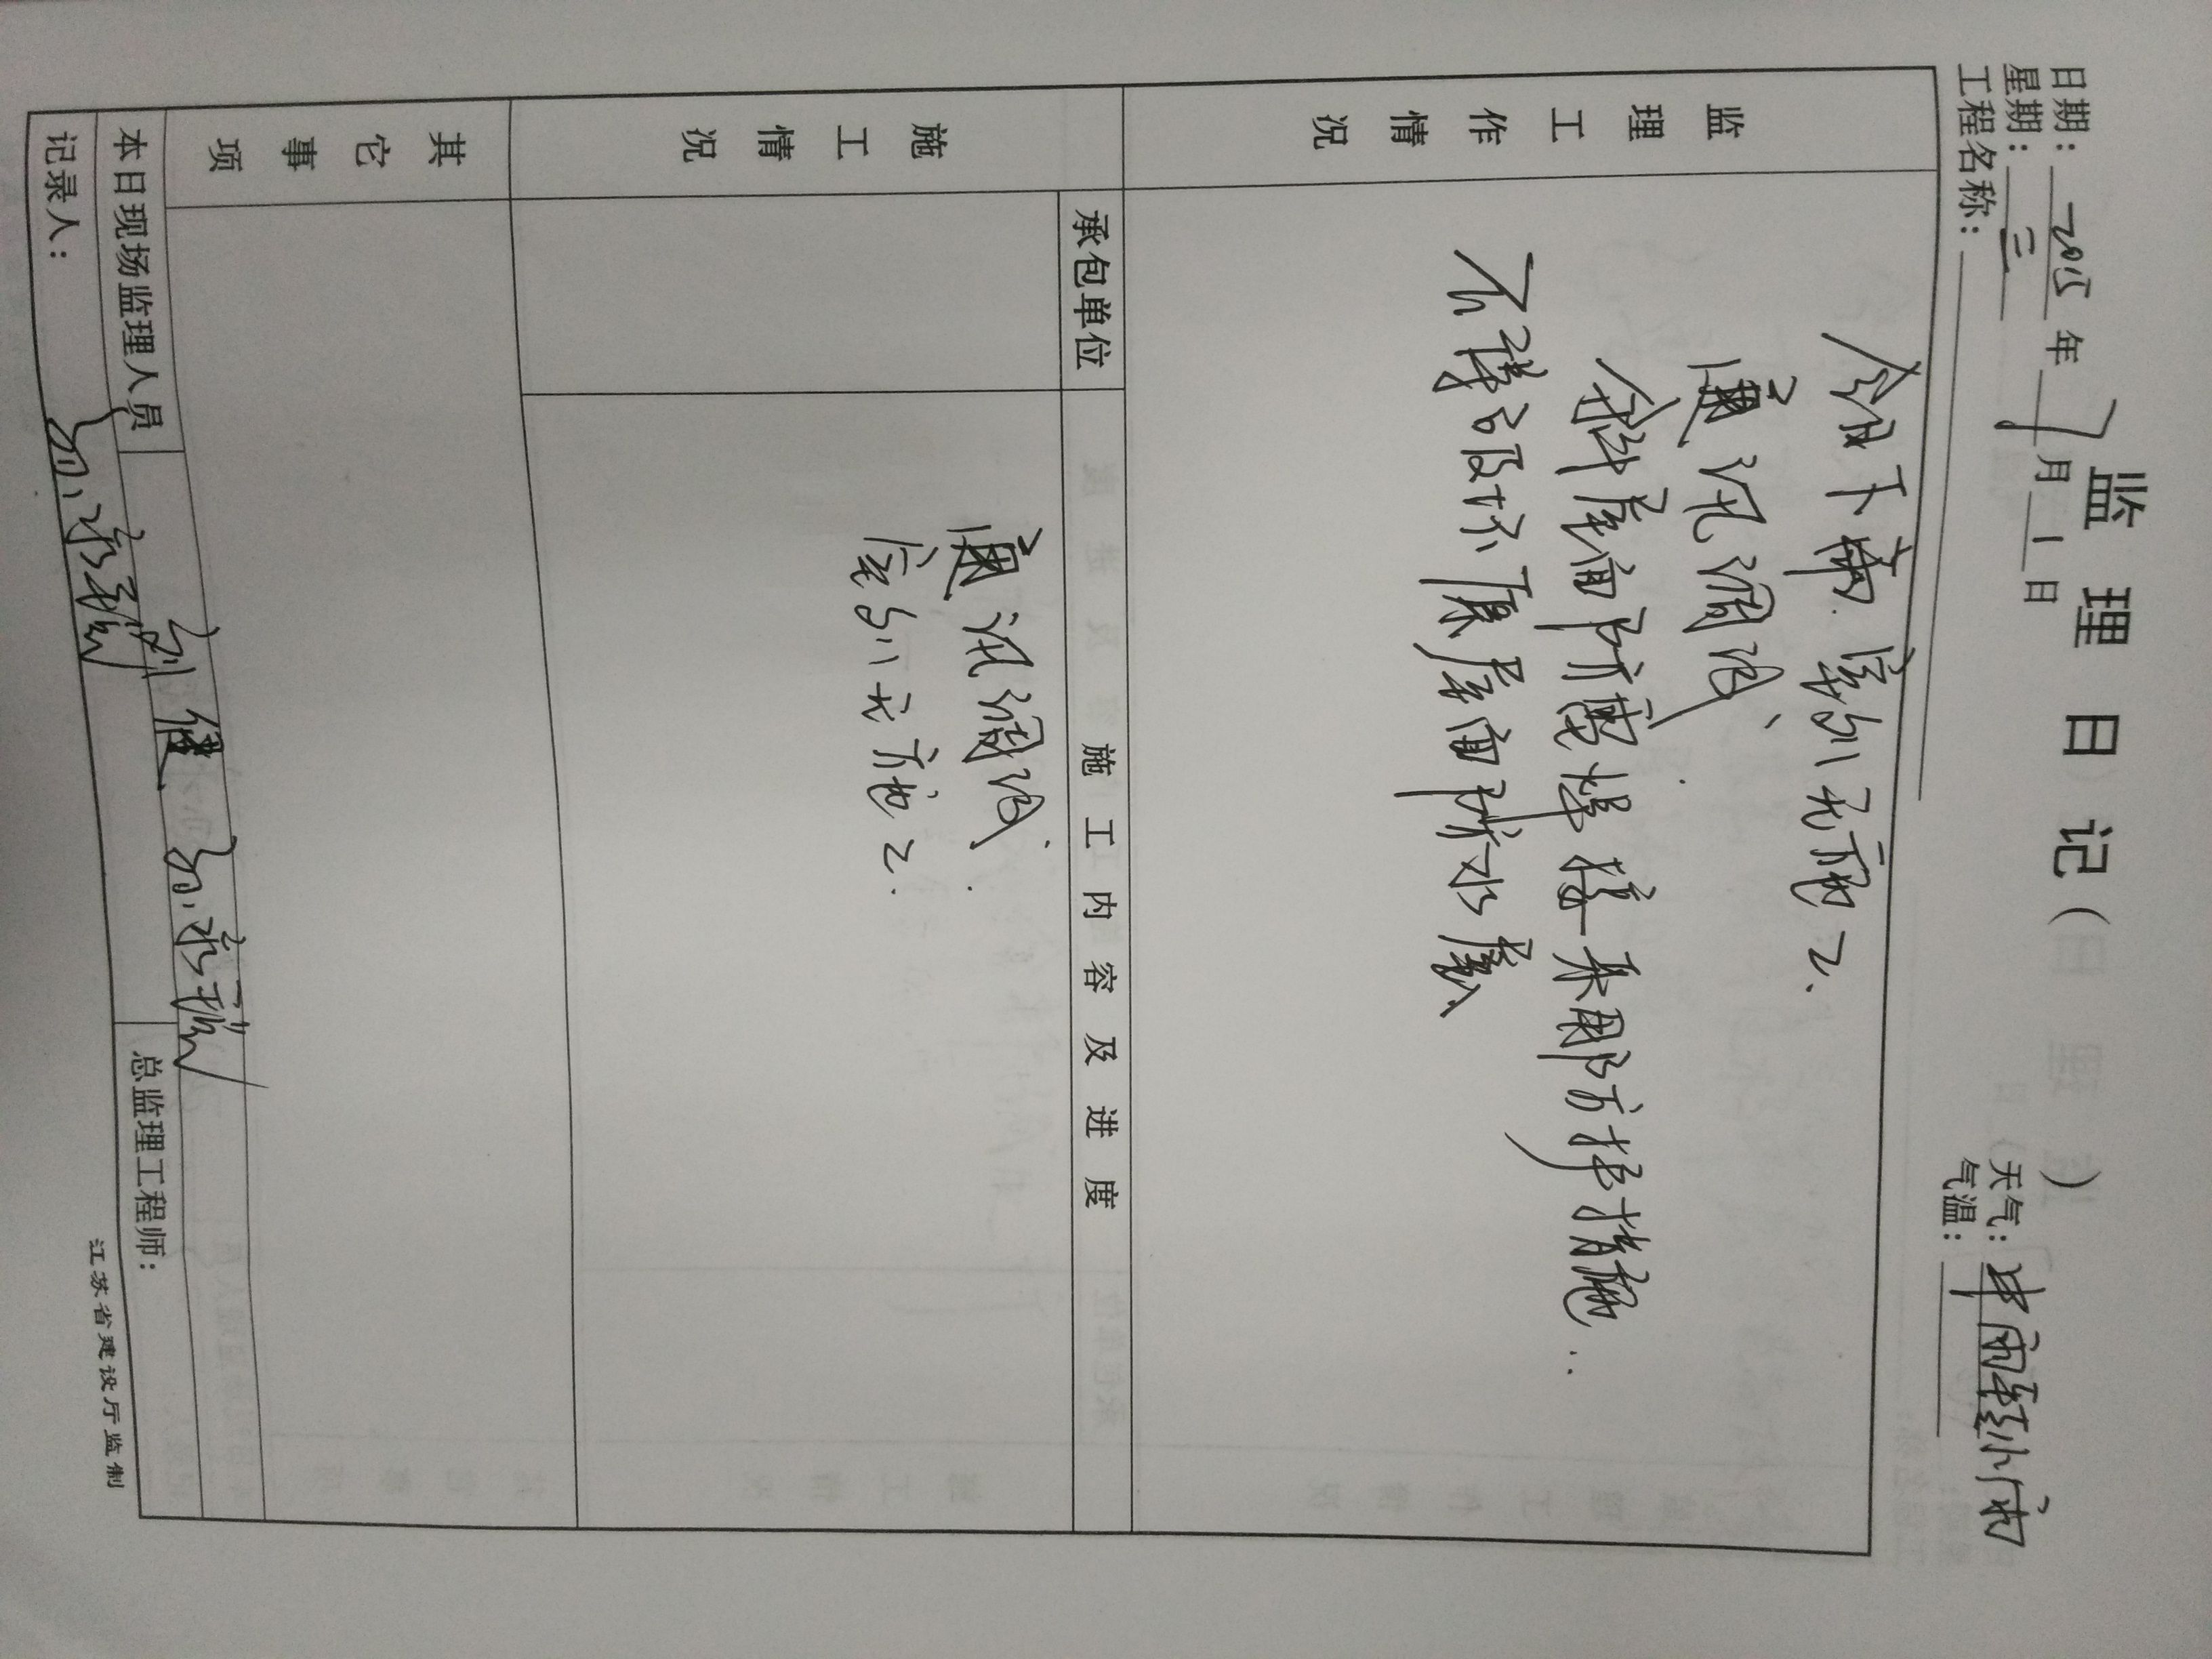 监理日记( )
日期: 2015 年 7 月 1 日
天气: 中雨转小雨
星期: 三
气温:
工程名称:
监理工作情况
今日下雨. 室外无施工.
通讯调试.
屋面防雷焊接采用防护措施..
不得破坏原屋面防水层.
施工情况
承包单位
施工内容及进度
通讯调试.
室外无施工.
其它事项
本日现场监理人员
总监理工程师:
记录人:
江苏省建设厅监制